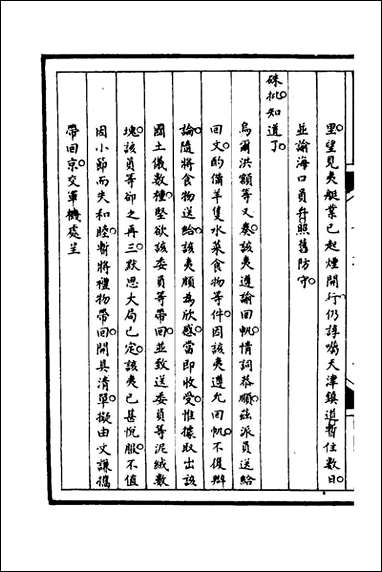 里望見夷艇業已起煙開行仍諄囑天津鎮道暫住數日
並諭海口員弁照舊防守
硃批知道了
烏爾洪額等又奏該夷遵諭回帆情詞恭順茲派員送給
回文酌備羊隻水菜食物等件因該夷遵允回帆不復辯
論隨將食物送給該夷頗為欣感當即收受惟據取出該
國土儀數種堅欲該委員等帶回並致送委員等泥絨數
塊該員等卻之再三默思大局已定該夷已甚悅服不值
因小節而失和睦暫將禮物帶回開具清單擬由文謙攜
帶回京交軍機處呈